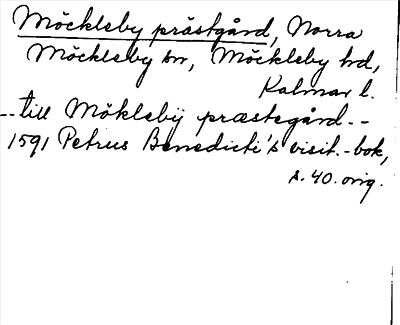 Möckleby prästgård, Norra
Möckleby sn, Möckleby hd,
Kalmar l.
-- till Mökleby præstegård --
1591 Petrus Benedicti's visit.-bok,
s. 40. orig.